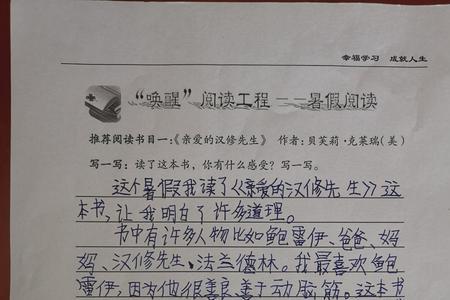 幸福学习 成就人生
“唤醒”阅读工程——暑假阅读
推荐阅读书目一:《亲爱的汉修先生》 作者:贝芙莉·克莱瑞(美)
写一写:读了这本书，你有什么感受？写一写。
这个暑假我读了《亲爱的汉修先生》这
本书,让我明白了许多道理。
书中有许多人物比如鲍雷伊、爸爸、妈
妈、汉修先生、法兰德林。我最喜欢鲍
雷伊,因为他很善良善于动脑筋。这本书